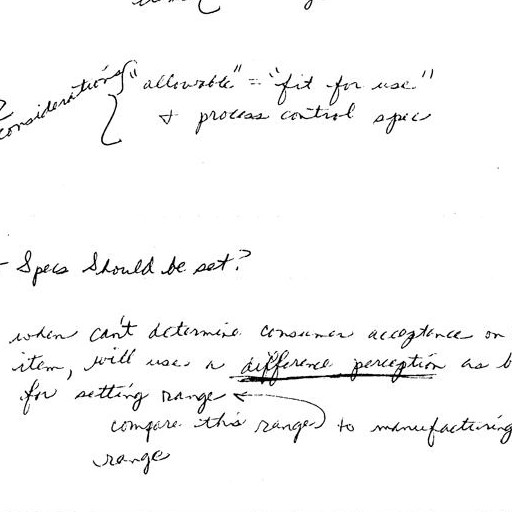 considerations { "allowable" = "fit for use"
+ process control spec
- Specs Should be set?
when can't determine consumer acceptance on
item, will use a difference perception as b
for setting range
compare this range to manufacturing
range